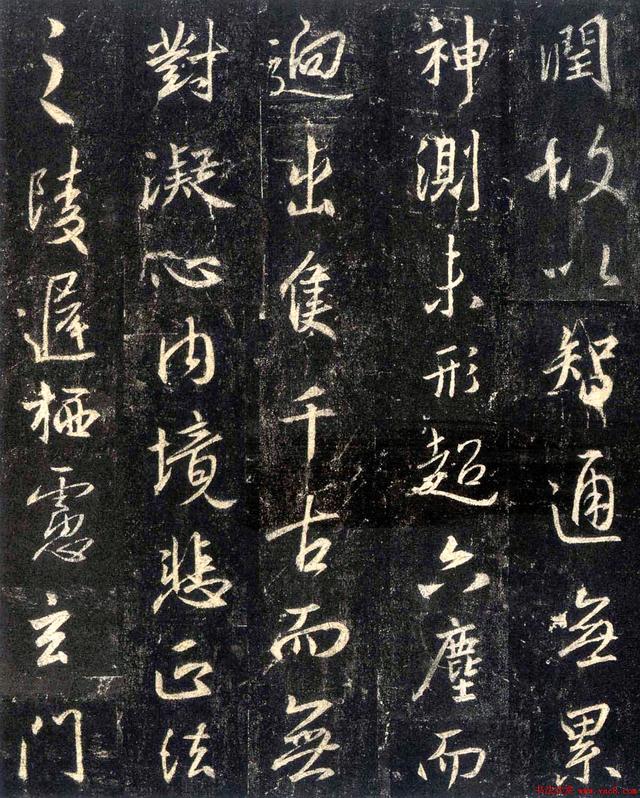 潤故以智通無累
神測未形超六塵而
迥出隻千古而無
對凝心內境悲正法
之陵遲栖慮玄門
www.yac8.com